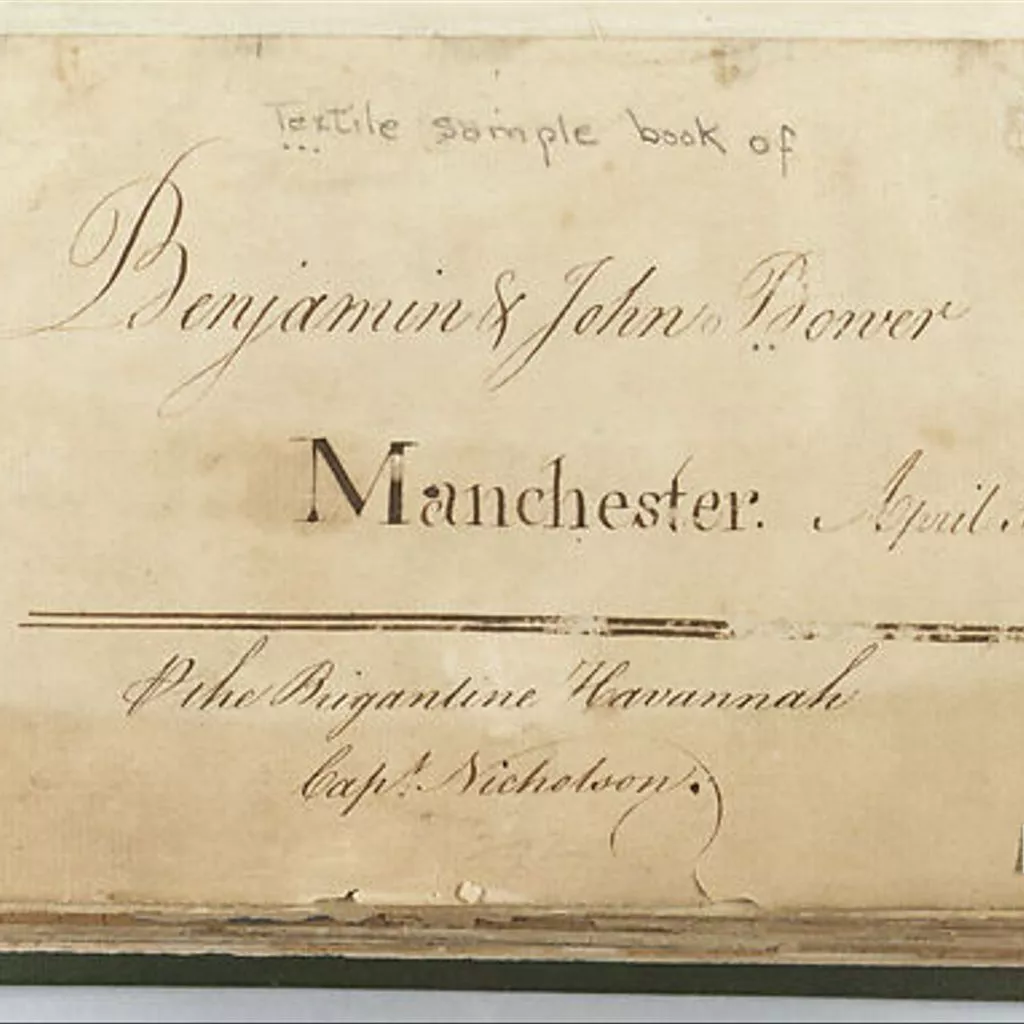 Textile sample book of
Benjamin & John Bower
Manchester. April
⅌ the Brigantine Havannah
Capt. Nicholson.